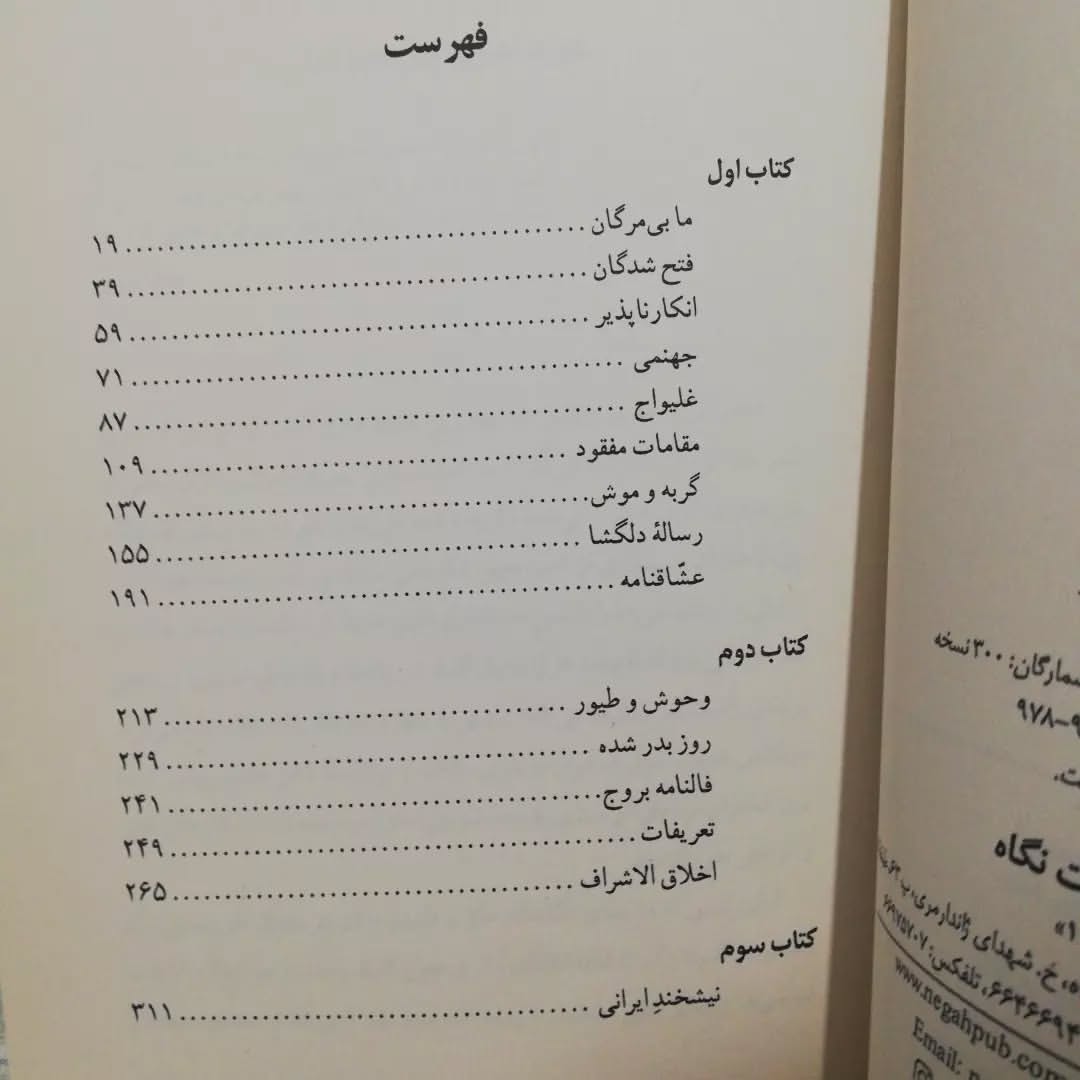 فهرست
کتاب اول
ما بی‌مرگان ........................................ ۱۹
فتح شدگان ........................................ ۳۹
انکارناپذیر ........................................ ۵۹
جهنمی ........................................ ۷۱
غلیواج ........................................ ۸۷
مقامات مفقود ........................................ ۱۰۹
گربه و موش ........................................ ۱۳۷
رسالهٔ دلگشا ........................................ ۱۵۵
عشّاقنامه ........................................ ۱۹۱
کتاب دوم
وحوش و طیور ........................................ ۲۱۳
روز بدر شده ........................................ ۲۲۹
فالنامه بروج ........................................ ۲۴۱
تعریفات ........................................ ۲۴۹
اخلاق الاشراف ........................................ ۲۶۵
کتاب سوم
نیشخندِ ایرانی ........................................ ۳۱۱
شمارگان: ۳۰۰ نسخه
۹۷۸-۹
نگاه
خ. شهدای ژاندارمری، پ ۶۳
تلفکس: ۶۶۹۷۵۷۰۷
www.negahpub.com
Email: